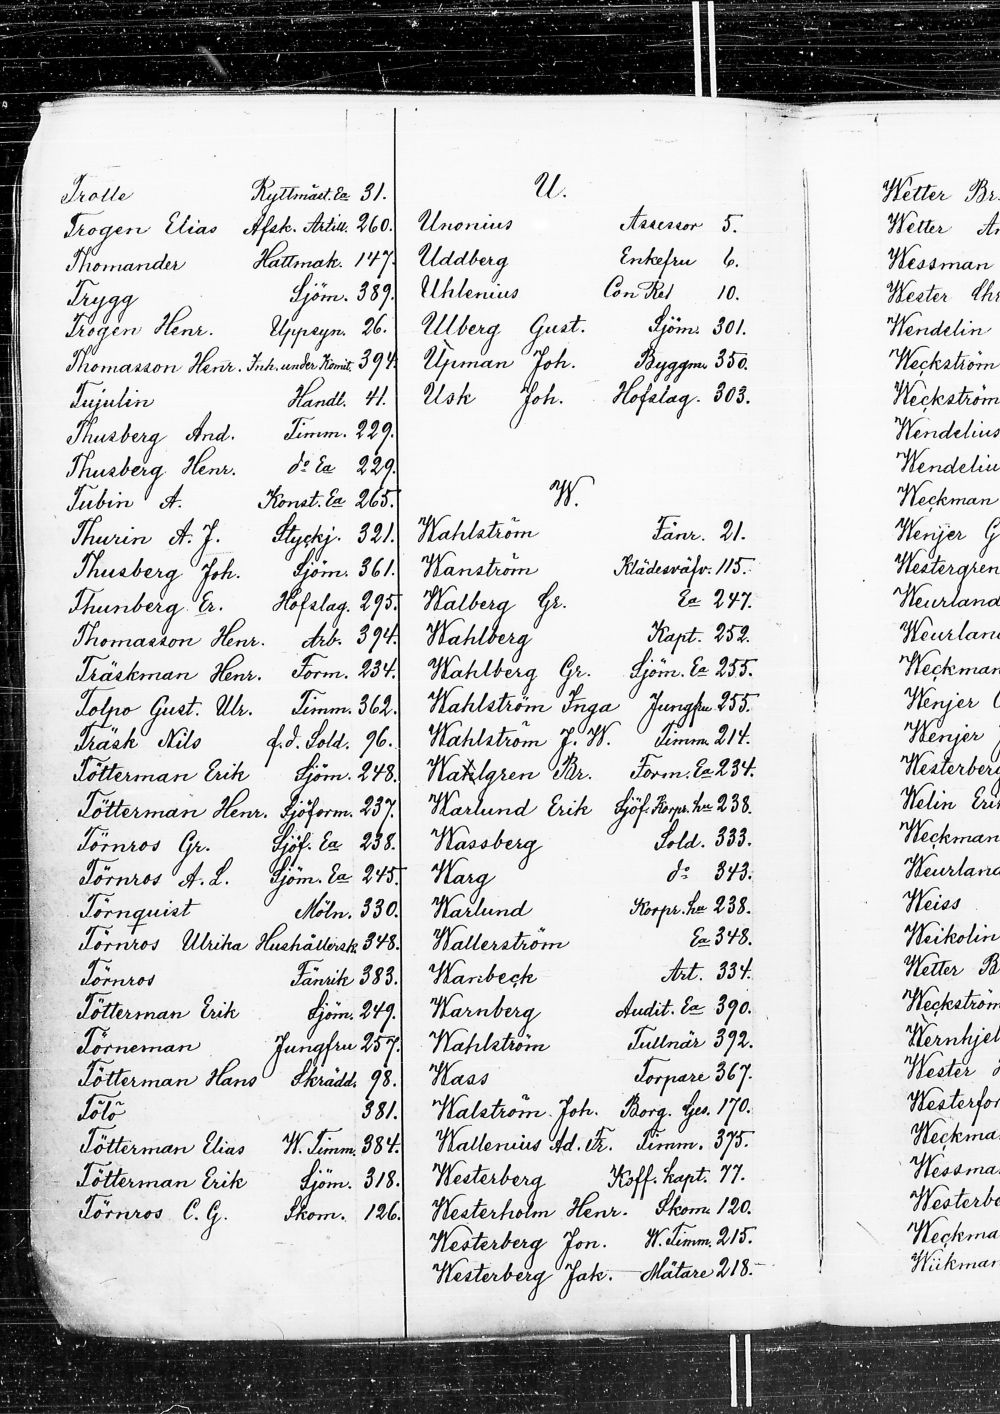 Trolle Ryttmäst. Ea 31.
Trogen Elias Afsk. Artill. 260.
Thomander Hattmak. 147.
Trygg Sjöm. 389.
Trogen Henr. Uppsyn. 26.
Thomasson Henr. Inh. under Komit. 394.
Tujulin Handl. 41.
Thusberg And. Timm. 229.
Thusberg Henr. do Ea 229.
Tubin A. Konst. Ea 265.
Thurin A. J. Styckj. 321.
Thusberg Joh. Sjöm. 361.
Thunberg Er. Hofslag. 295.
Thomasson Henr. Arb. 394.
Träskman Henr. Form. 234.
Tolpo Gust. Ulr. Timm. 362.
Träsk Nils f.d. Sold. 96.
Tötterman Erik Sjöm. 248.
Tötterman Henr. Sjöform. 237.
Törnros Gr. Sjöf. Ea 238.
Törnros A. L. Sjöm. Ea 245.
Törnquist Möln. 330.
Törnros Ulrika Hushållersk. 348.
Törnros Fänrik 383.
Tötterman Erik Sjöm. 249.
Törneman Jungfru 257.
Tötterman Hans Skrädd. 98.
Tölö 381.
Tötterman Elias W. Timm. 384.
Tötterman Erik Sjöm. 318.
Törnros C. G. Skom. 126.
U.
Unonius Assessor 5.
Uddberg Enkefru 6.
Uhlenius Con Ret 10.
Ulberg Gust. Sjöm. 301.
Upman Joh. Byggm. 350.
Usk Joh. Hofslag. 303.
W.
Wahlström Fänr. 21.
Wanström Klädesväfv. 115.
Walberg Gr. Ea 247.
Wahlberg Kapt. 252.
Wahlberg Gr. Sjöm. Ea 255.
Wahlström Inga Jungfru 255.
Wahlström J. W. Timm. 214.
Wahlgren Br. Form. Ea 234.
Warlund Erik Sjöf. Korpr. hu 238.
Wassberg Sold. 333.
Warg do 343.
Warlund Korpr. hu 238.
Wallerström Ea 348.
Wanbeck Art. 334.
Warnberg Audit. Ea 390.
Wahlström Tullnär 392.
Wass Torpare 367.
Walström Joh. Borg. Ges. 170.
Wallenius Ad. Fr. Timm. 375.
Westerberg Koff. kapt. 77.
Westerholm Henr. Skom. 120.
Westerberg Jon. W. Timm. 215.
Westerberg Jak. Mätare 218.
Wetter Br.
Wetter An
Wessman
Wester Chr
Wendelin
Weckström
Weckström
Wendelius
Wendeliu
Weckman
Wenjer G
Westergren
Weurland
Weurlan
Weckman
Wenjer
Wenjer
Westerberg
Welin Eri
Weckman
Weurland
Weiss
Weikolin
Wetter B
Weckström
Wernhjel
Wester
Westerfor
Weckma
Wessma
Westerbe
Weckma
Wiikman